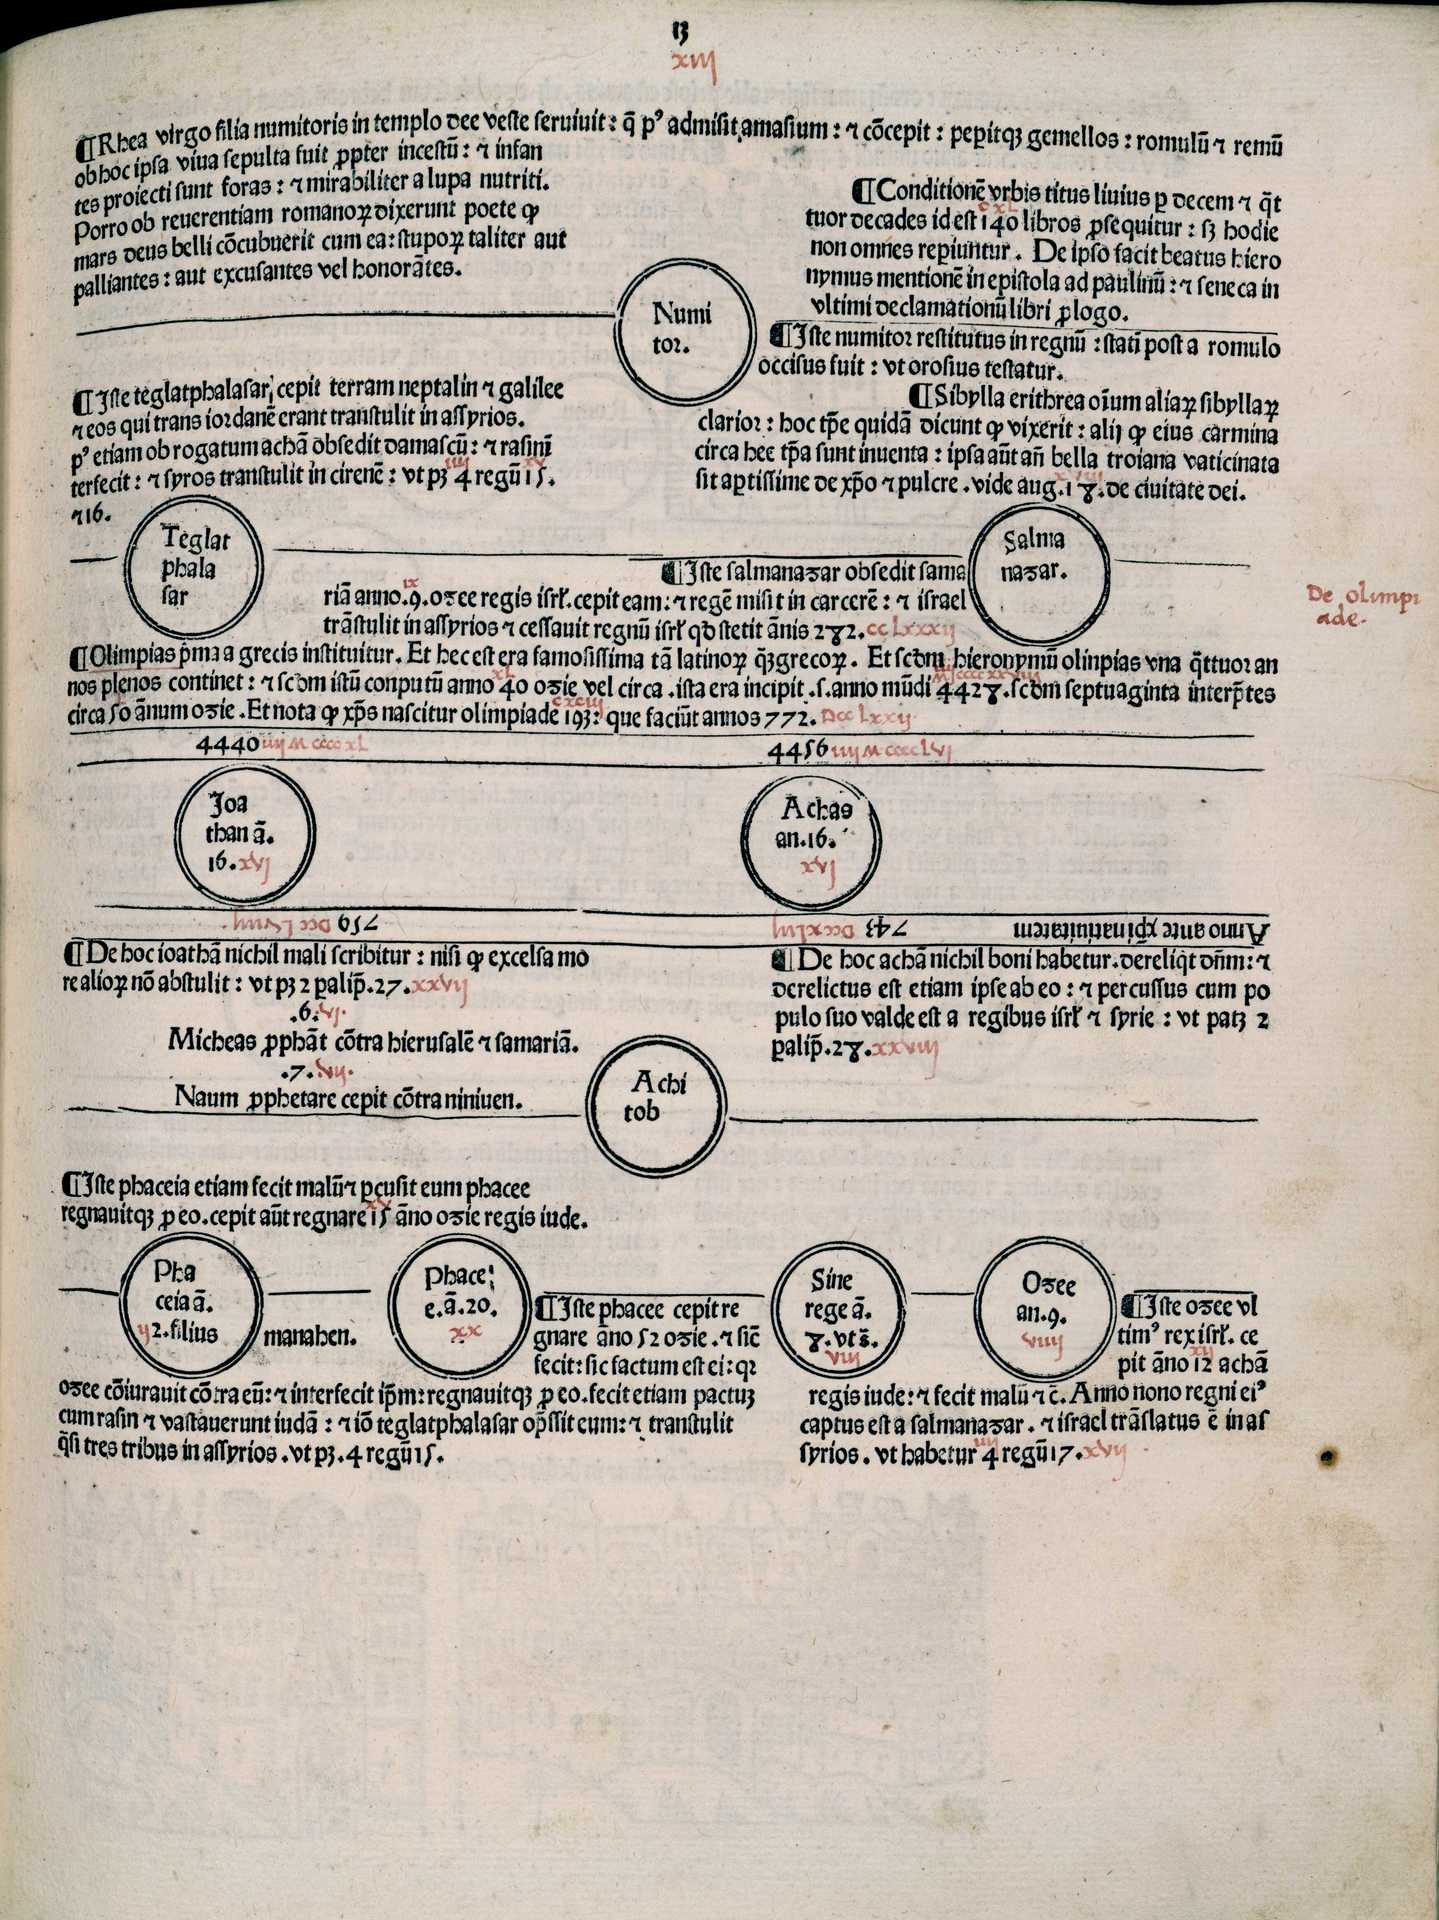 13
xiij
¶Rhea virgo filia numitoris in templo dee veste seruiuit: q̄ pꝰ admisit amasium: ⁊ cōcepit: peꝑitqꝫ gemellos: romulū ⁊ remū
ob hoc ipsa viua sepulta fuit ꝓpter incestū: ⁊ infan
tes proiecti sunt foras: ⁊ mirabiliter a lupa nutriti.
Porro ob reuerentiam romanoꝝ dixerunt poete ꝙ
mars deus belli cōcubuerit cum ea: stupoꝝ taliter aut
palliantes: aut excusantes vel honorātes.
¶Conditionē vrbis titus liuius ꝑ decem ⁊ q̄t
cxl
tuor decades id est 140 libros ꝓsequitur: sꝫ hodie
non omnes reperiuntur. De ipso facit beatus hiero
nymus mentionē in epistola ad paulinū: ⁊ seneca in
vltimi declamationū libri ꝓlogo.
Numi
tor.
¶Iste numitor restitutus in regnū: statī post a romulo
occisus fuit: vt orosius testatur.
¶Iste teglatphalasar cepit terram neptalin ⁊ galilee
⁊ eos qui trans iordanē erant transtulit in assyrios.
pꝰ etiam ob rogatum achā obsedit damascū: ⁊ rasinī
iiij xv
terfecit: ⁊ syros transtulit in cirenē: vt pꝫ 4 regū 15.
⁊ 16.
¶Sibylla erithrea oīum aliaꝝ sibyllaꝝ
clarior: hoc tp̄e quidā dicunt ꝙ vixerit: alij ꝙ eius carmina
circa hec tp̄a sunt inuenta: ipsa aūt an̄ bella troiana vaticinata
sit aptissime de xp̄o ⁊ pulcre. vide aug. 18. de ciuitate dei.
Teglat
phala
sar
Salma
nazar.
¶Iste salmanazar obsedit sama
ix
riā anno .9. ozee regis isrł. cepit eam: ⁊ regē misit in carcerē: ⁊ israel
trāstulit in assyrios ⁊ cessauit regnū isrł qd stetit ānis 282. cclxxxij
De olimpi
ade.
¶Olimpias p̄ma a grecis instituitur. Et hec est era famosissima tā latinoꝝ q̄ꝫ grecoꝝ. Et scdm hieronymū olinpias vna q̄ttuor an
xl iiijMccccxxviij
nos plenos continet: ⁊ scdm istū conputū anno 40 ozie vel circa. ista era incipit .s. anno mūdi 4428. scdm septuaginta interp̄tes
cxciij
circa 50 ānum ozie. Et nota ꝙ xp̄s nascitur olimpiade 193: que faciūt annos 772. Dcclxxij
4440 iiijMccccxl
4456 iiijMcccclvi
Joa
than ā.
16. xvj
Achas
an. 16.
xvj
759 Dcclviiij
743 Dccxliij
Anno ante xp̄i natiuitatem
¶De hoc ioathā nichil mali scribitur: nisi ꝙ excelsa mo
re alioꝝ nō abstulit: vt pꝫ 2 ꝑalip̄. 27. xxvij
.6. vj.
Micheas ꝓphāt cōtra hierusalē ⁊ samariā.
.7. vij.
Naum ꝓphetare cepit cōtra niniuen.
¶De hoc achā nichil boni habetur. dereliq̄t dn̄m: ⁊
derelictus est etiam ipse ab eo: ⁊ percussus cum po
pulo suo valde est a regibus isrł ⁊ syrie: vt patꝫ 2
ꝑalip̄. 28. xxviij
Achi
tob
¶Iste phaceia etiam fecit malū ⁊ ꝑcusit eum phacee
xv
regnauitqꝫ ꝓ eo. cepit aūt regnare 15 āno ozie regis iude.
Pha
ceia ā.
ij 2. filius manahen.
Phace
e. ā. 20.
xx
¶Iste phacee cepit re
gnare āno 52 ozie. ⁊ sic̄
fecit: sic factum est ei: qꝛ
ozee cōiurauit cōtra eū: ⁊ interfecit ip̄m: regnauitqꝫ ꝓ eo. fecit etiam pactuꝫ
cum rasin ⁊ vastauerunt iudā: ⁊ iō teglatphalasar op̄ssit eum: ⁊ transtulit
q̄si tres tribus in assyrios. vt pꝫ. 4 regū 15.
Sine
rege ā.
8. vt s̄.
viij
Ozee
an. 9.
viiij
¶Iste ozee vl
timꝰ rex isrł. ce
xij
pit āno 12 achā
regis iude: ⁊ fecit malū ⁊ c̄. Anno nono regni eiꝰ
captus est a salmanazar. ⁊ israel trāslatus ē in as
iiij
syrios. vt habetur 4 regū 17. xvij